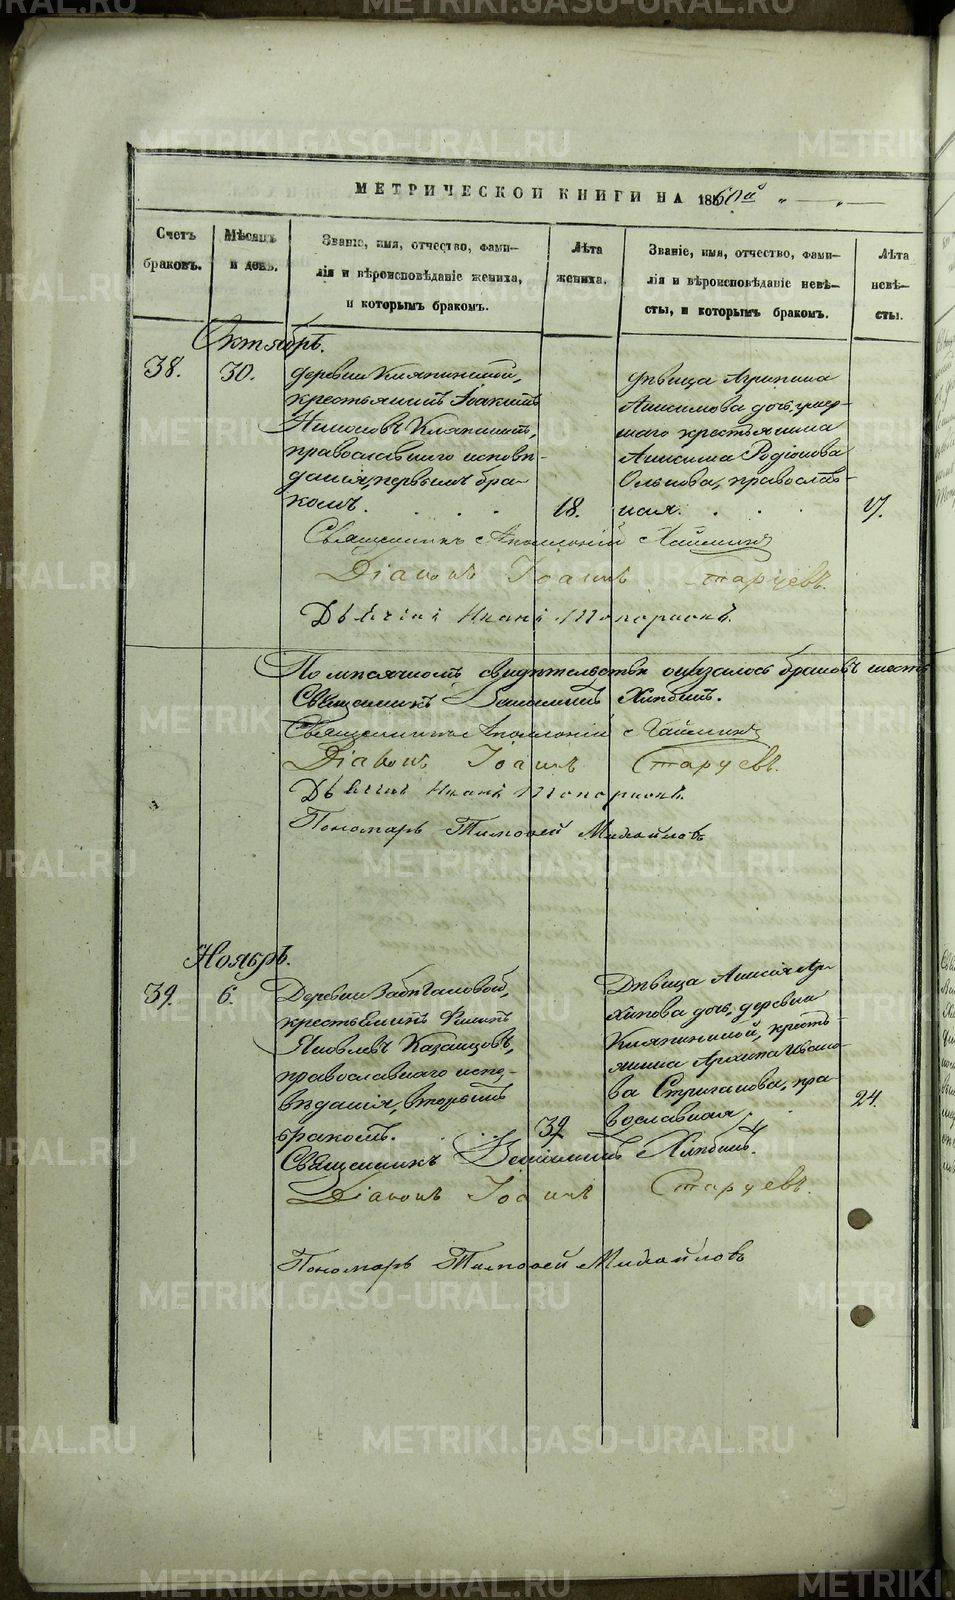 МЕТРИЧЕСКОЙ КНИГИ НА 1860й
Счетъ браковъ.
Мѣсяцъ и день.
Званіе, имя, отчество, фами-
лія и вѣроисповѣданіе жениха,
и которымъ бракомъ.
Лѣта жениха.
Званіе, имя, отчество, фами-
лія и вѣроисповѣданіе невѣ-
сты, и которымъ бракомъ.
Лѣта невѣ-
сты.
Октябрь.
38.
30.
деревни Кляпинской,
крестьянинъ Іоакимъ
Кляпининъ,
православнаго исповѣ-
данія, первымъ бра-
комъ.
18.
дѣвица Агрипина
Анисимова дочь, умер-
шаго крестьянина
Анисима Родіонова
Ольнова, православ-
ная.
17.
Священникъ Аполлоній
Діаконъ Іоаннъ Старцевъ.
Дьячекъ Топорковъ.
По мѣсячномъ свидѣтельствѣ оказалось браковъ шесть
Священникъ Веніаминъ Хлѣбинъ.
Священникъ Аполлоній
Діаконъ Іоаннъ Старцевъ.
Дьячекъ Топорковъ.
Пономарь Тимофей Михайловъ
Ноябрь.
39.
6.
Деревни
крестьянинъ Филипъ
Яковлевъ Казанцовъ,
православнаго испо-
вѣданія, вторымъ
бракомъ.
39.
Дѣвица Анисія Ар-
хипова дочь, деревни
Кляпинской, кресть-
янина Архипа Ивано-
ва Стриганова, пра-
вославная.
24.
Священникъ Веніаминъ Хлѣбинъ.
Діаконъ Іоаннъ Старцевъ.
Пономарь Тимофей Михайловъ
METRIKI.GASO-URAL.RU